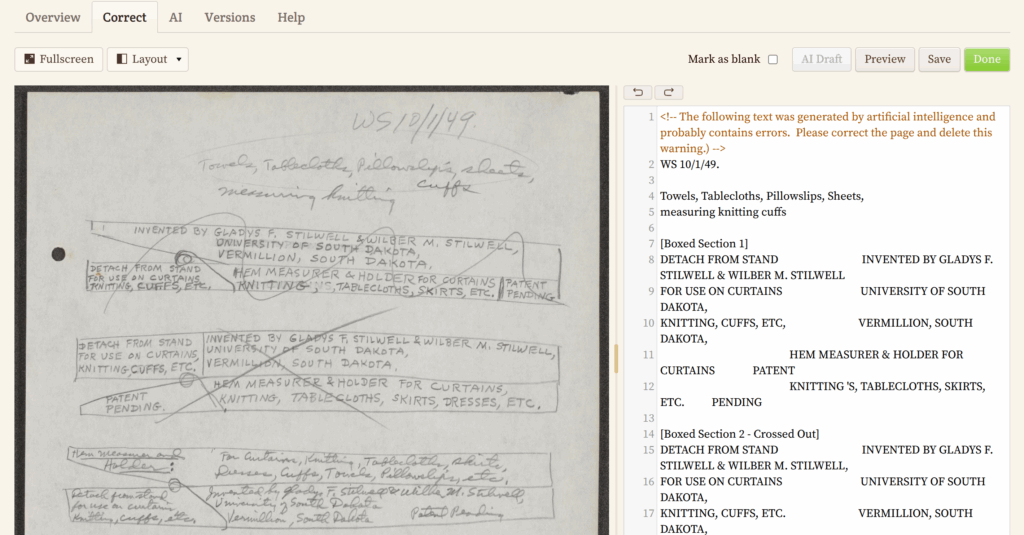 Overview Correct AI Versions Help
Fullscreen Layout Mark as blank AI Draft Preview Save Done
WS 10/1/49.
Towels, Tablecloths, Pillowslips, sheets,
cuffs
measuring knitting
INVENTED BY GLADYS F. STILWELL & WILBER M. STILWELL,
UNIVERSITY OF SOUTH DAKOTA,
VERMILLION, SOUTH DAKOTA,
DETACH FROM STAND
FOR USE ON CURTAINS
KNITTING, CUFFS, ETC.
HEM MEASURER & HOLDER FOR CURTAINS
KNITTING 'S, TABLECLOTHS, SKIRTS, ETC.
PATENT
PENDING
DETACH FROM STAND
FOR USE ON CURTAINS,
KNITTING, CUFFS, ETC.
INVENTED BY GLADYS F. STILWELL & WILBER M. STILWELL,
UNIVERSITY OF SOUTH DAKOTA,
VERMILLION, SOUTH DAKOTA,
PATENT
PENDING.
HEM MEASURER & HOLDER FOR CURTAINS,
KNITTING, TABLECLOTHS, SKIRTS, DRESSES, ETC.
Hem Measurer and
Holder:
For Curtains, Knitting, Tablecloths, Skirts,
Dresses, Cuffs, Towels, Pillowslips, etc.
Detach from stand
for use on curtains
Knitting, cuffs, etc.
Invented by Gladys F. Stilwell & Wilber M. Stilwell
University of South Dakota
Vermillion, South Dakota
Patent Pending
1 <!-- The following text was generated by artificial intelligence and
probably contains errors. Please correct the page and delete this
warning.) -->
2 WS 10/1/49.
3
4 Towels, Tablecloths, Pillowslips, Sheets,
5 measuring knitting cuffs
6
7 [Boxed Section 1]
8 DETACH FROM STAND INVENTED BY GLADYS F.
STILWELL & WILBER M. STILWELL
9 FOR USE ON CURTAINS UNIVERSITY OF SOUTH
DAKOTA,
10 KNITTING, CUFFS, ETC, VERMILLION, SOUTH
DAKOTA,
11 HEM MEASURER & HOLDER FOR
CURTAINS PATENT
12 KNITTING 'S, TABLECLOTHS, SKIRTS,
ETC. PENDING
13
14 [Boxed Section 2 - Crossed Out]
15 DETACH FROM STAND INVENTED BY GLADYS F.
STILWELL & WILBER M. STILWELL,
16 FOR USE ON CURTAINS UNIVERSITY OF SOUTH
DAKOTA,
17 KNITTING, CUFFS, ETC. VERMILLION, SOUTH
DAKOTA,